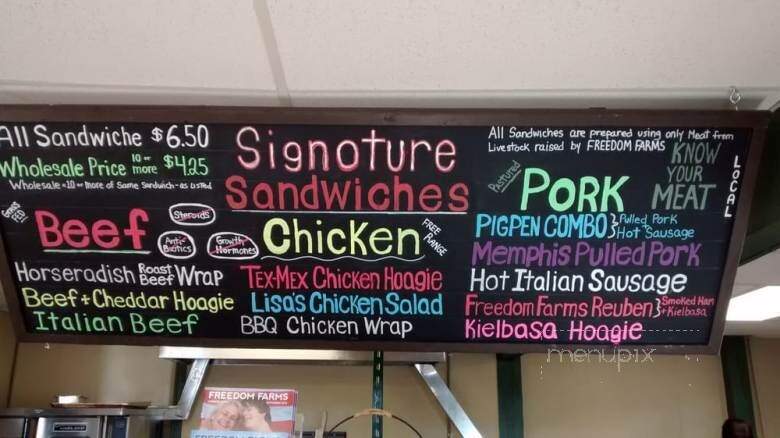 All Sandwiche $6.50
Wholesale Price 10 or more $4.25
Wholesale = 10 or more of Same Sandwich - as Listed
Signoture
Sandwiches
All Sandwiches are prepared using only Meat from
Livestock raised by FREEDOM FARMS
KNOW
YOUR
MEAT
LOCAL
Grass
FED
Beef
Steroids
Anti-
Biotics
Growth
Hormones
Horseradish Roast Beef Wrap
Beef + Cheddar Hoagie
Italian Beef
Chicken
FREE
RANGE
Tex-Mex Chicken Hoagie
Lisa's Chicken Salad
BBQ Chicken Wrap
Pastured
PORK
PIGPEN COMBO } Pulled Pork
Hot Sausage
Memphis Pulled Pork
Hot Italian Sausage
Freedom Farms Reuben } Smoked Ham
+ Kielbasa
Kielbasa Hoagie
menupix
FREEDOM FARMS